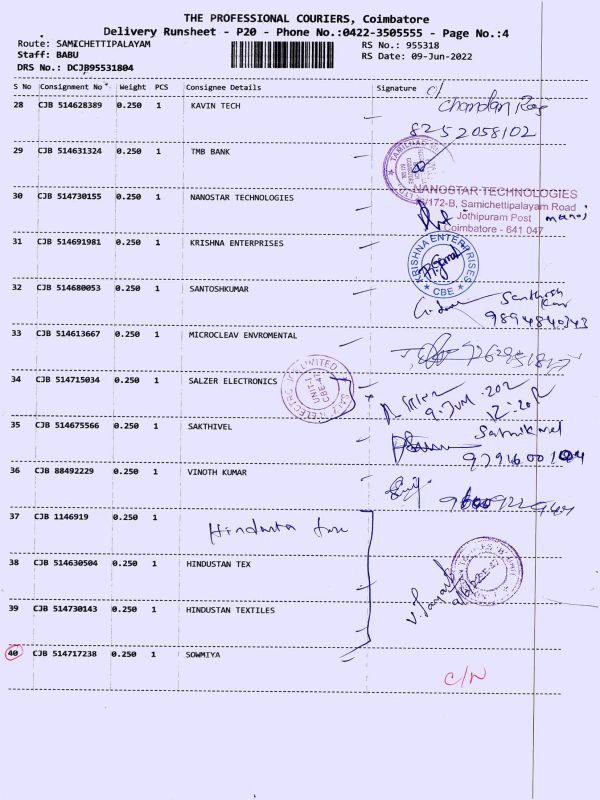 THE PROFESSIONAL COURIERS, Coimbatore
Delivery Runsheet - P20 - Phone No.:0422-3505555 - Page No.:4
Route: SAMICHETTIPALAYAM RS No.: 955318
Staff: BABU RS Date: 09-Jun-2022
DRS No.: DCJB95531804
S No Consignment No Weight PCS Consignee Details Signature c/
28 CJB 514628389 0.250 1 KAVIN TECH Chandan Raj
8252058102
29 CJB 514631324 0.250 1 TMB BANK
30 CJB 514730155 0.250 1 NANOSTAR TECHNOLOGIES NANOSTAR TECHNOLOGIES
/172-B, Samichettipalayam Road
Jothipuram Post
Coimbatore - 641 047
31 CJB 514691981 0.250 1 KRISHNA ENTERPRISES KRISHNA ENTERPRISES
CBE
32 CJB 514680053 0.250 1 SANTOSHKUMAR Santhosh
9894840343
33 CJB 514613667 0.250 1 MICROCLEAV ENVROMENTAL
34 CJB 514715034 0.250 1 SALZER ELECTRONICS LIMITED
UNIT-I
35 CJB 514675566 0.250 1 SAKTHIVEL
36 CJB 88492229 0.250 1 VINOTH KUMAR
37 CJB 1146919 0.250 1
38 CJB 514630504 0.250 1 HINDUSTAN TEX
39 CJB 514730143 0.250 1 HINDUSTAN TEXTILES
40 CJB 514717238 0.250 1 SOWMIYA
C/N